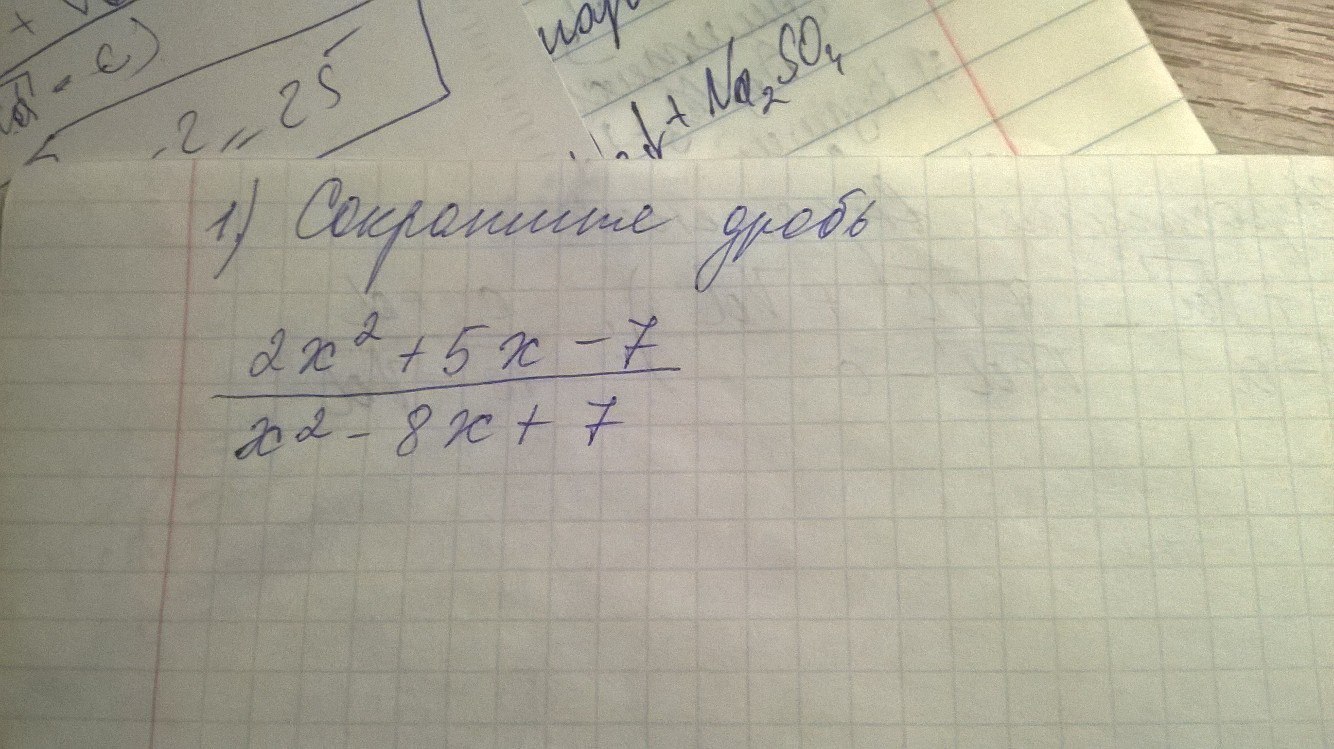 - 2 „ 25
+ Na₂SO₄
1) Сократите дробь
2x² + 5x - 7
x² - 8x + 7